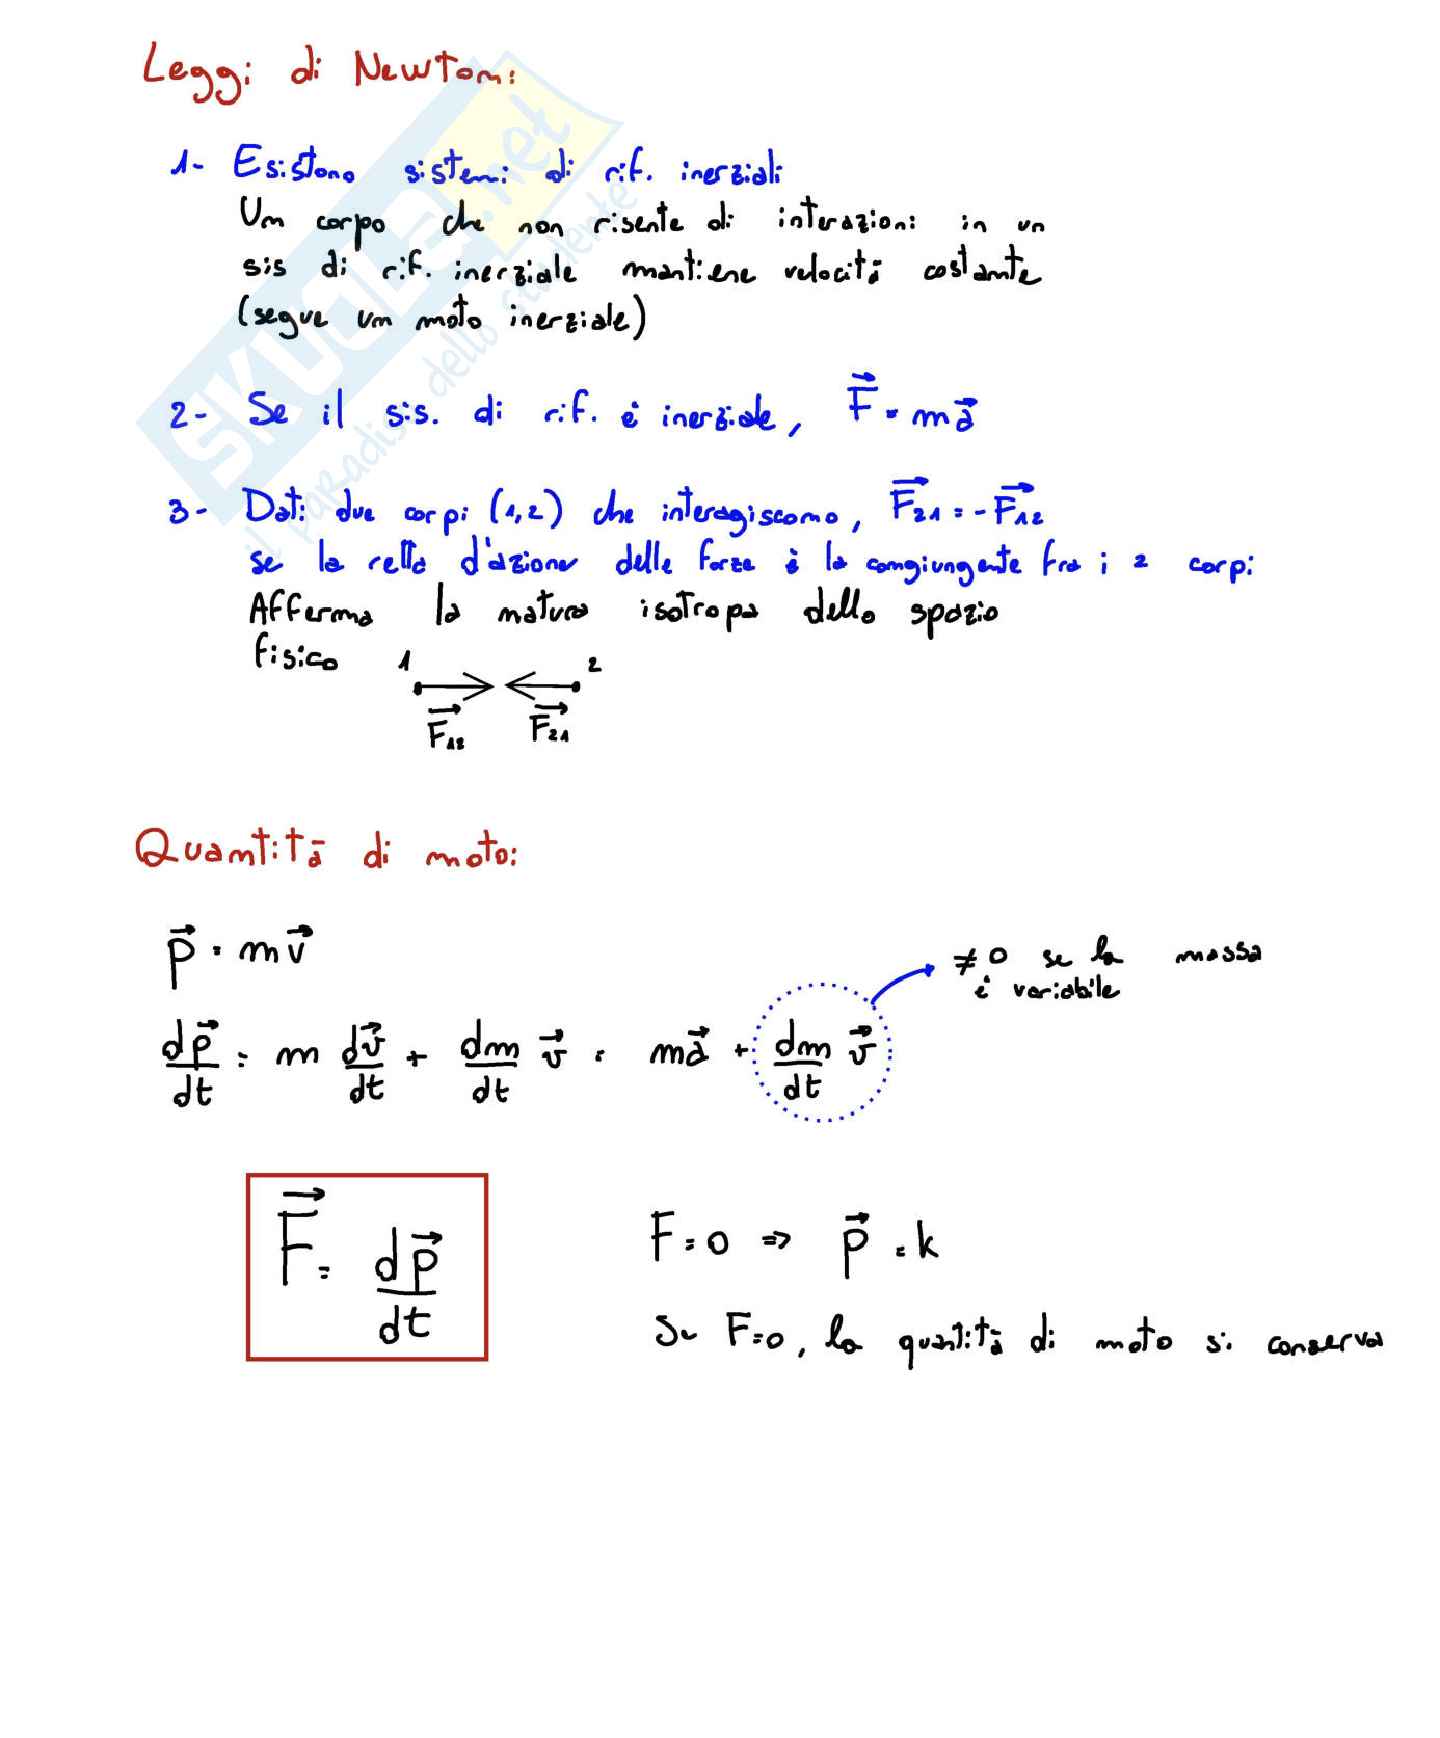 Leggi di Newton:
1- Esistono sistemi di rif. inerziali
Un corpo che non risente di interazioni in un
sis di rif. inerziale mantiene velocità costante
(segue un moto inerziale)
2- Se il sis. di rif. è inerziale, F⃗ = m a⃗
3- Dati due corpi (1,2) che interagiscono, F⃗₂₁ = - F⃗₁₂
se la retta d'azione delle forze è la congiungente fra i 2 corpi
Afferma la natura isotropa dello spazio
fisico
1 2
F⃗₁₂ F⃗₂₁
Quantità di moto:
p⃗ = m v⃗
≠ 0 se la massa
è variabile
dp⃗/dt = m dv⃗/dt + dm/dt v⃗ = m a⃗ + dm/dt v⃗
F⃗ = dp⃗/dt
F = 0 ⇒ p⃗ = k
Se F=0, la quantità di moto si conserva
SKUOLA.net
il paradiso dello studente